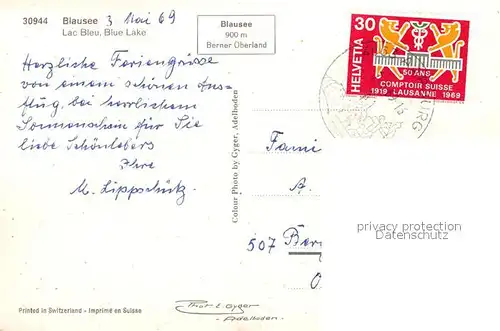 30944 Blausee 3 Mai 69
Lac Bleu, Blue Lake
Blausee
900 m
Berner Oberland
HELVETIA
30
50 ANS
COMPTOIR SUISSE
1919 LAUSANNE 1969
BURG
Herzliche Feriengrüsse
von einem schönen Aus-
flug, bei herrlichem
Sonnenschein für Sie
liebe Schönlebers
Ihre
M. Lippschütz
Colour Photo by Gyger, Adelboden
Fami
A.
507 Ber
privacy protection
Datenschutz
Printed in Switzerland - Imprimé en Suisse
Phot. E. Gyger
Adelboden